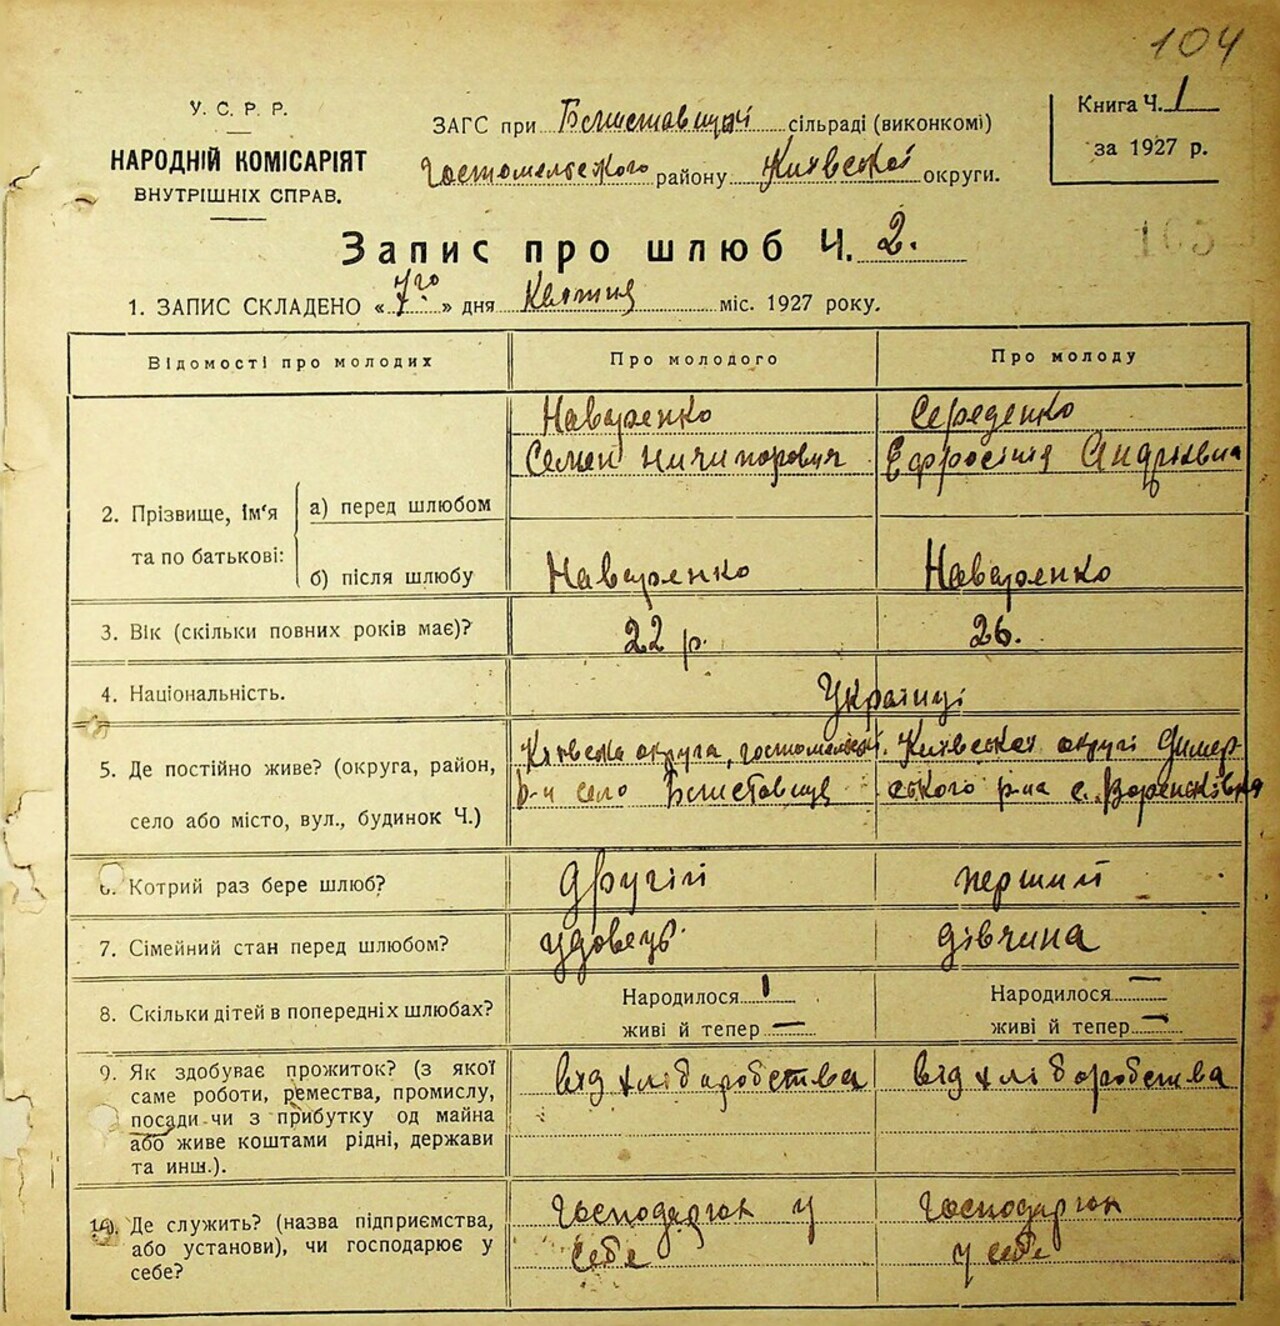 104
У. С. Р. Р.
НАРОДНІЙ КОМІСАРІЯТ
ВНУТРІШНІХ СПРАВ.
ЗАГС при Блиставицькі сільраді (виконкомі)
Гостомельського району Київської округи.
Книга Ч. 1
за 1927 р.
105
Запис про шлюб Ч. 2.
1. ЗАПИС СКЛАДЕНО « 7го » дня Квітня міс. 1927 року.
Відомості про молодих
Про молодого
Про молоду
2. Прізвище, ім'я
та по батькові:
а) перед шлюбом
Назаренко
Семен Ничипорович
Середенко
Ефросинія Андріївна
б) після шлюбу
Назаренко
Назаренко
3. Вік (скільки повних років має)?
22 р.
26.
4. Національність.
Українці
5. Де постійно живе? (округа, район,
село або місто, вул., будинок Ч.)
Київська округа, гостомельськ.
р-н село Блиставиця
Київської округі Димер-
ського р-на с.
6. Котрий раз бере шлюб?
другій
перший
7. Сімейний стан перед шлюбом?
удовець
дівчина
8. Скільки дітей в попередніх шлюбах?
Народилося 1
живі й тепер —
Народилося —
живі й тепер —
9. Як здобуває прожиток? (з якої
саме роботи, ремества, промислу,
посади чи з прибутку од майна
або живе коштами рідні, держави
та инш.).
від хліборобства
від хліборобства
10. Де служить? (назва підприємства,
або установи), чи господарює у
себе?
Господаргок у
себе
Господаргок
у себе